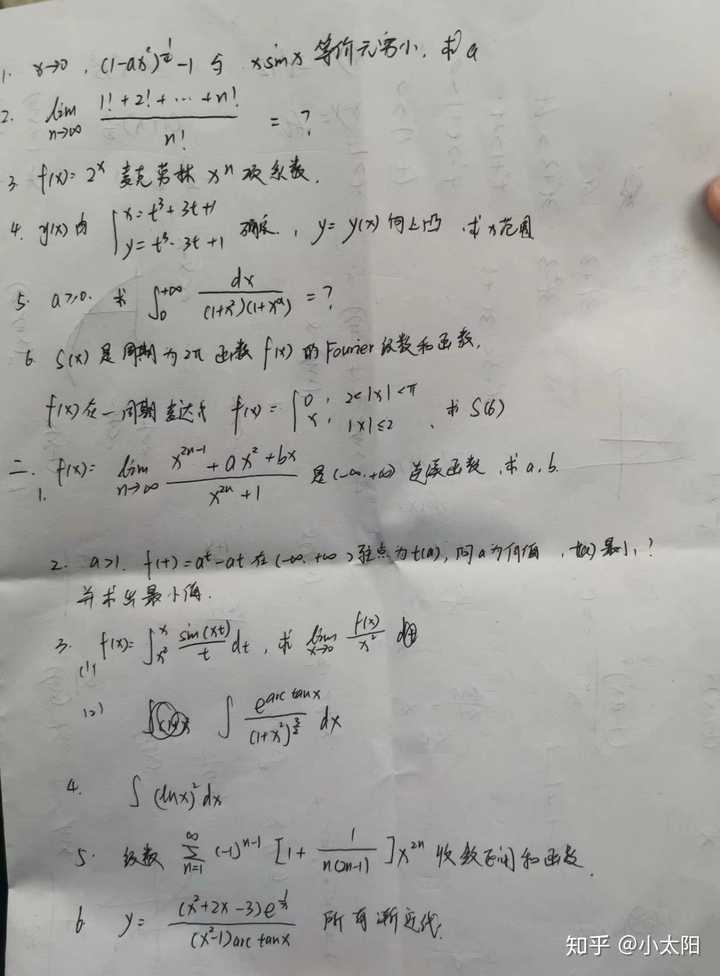 1. x→0, (1-ax²)^{1/2}-1 与 x sin x 等价无穷小, 求 a
2. lim_{n→∞} (1!+2!+⋯+n!)/n! = ?
3. f(x)=2^x 麦克劳林 x^n 项系数.
4. y(x)由 {x=t³+3t+1, y=t³-3t+1 确定, y=y(x) 向上凸, 求x范围
5. a≥0. 求 ∫_0^{+∞} dx/((1+x²)(1+x^a)) = ?
6. S(x)是周期为2π函数 f(x)的Fourier级数和函数,
f(x)在一周期表达式 f(x)={0, 2<|x|<π; x, |x|≤2, 求S(6)
二.
1. f(x)= lim_{n→∞} (x^{2n-1}+ax²+bx)/(x^{2n}+1) 是(-∞,+∞)连续函数, 求a,b.
2. a>1. f(t)=a^t-at 在(-∞,+∞)驻点为t(a), 问a为何值, t(a)最小?
并求出最小值.
3. (1) f(x)=∫_{x²}^{x} sin(xt)/t dt, 求 lim_{x→0} f(x)/x²
(2) ∫ e^{arc tan x}/(1+x²)^{3/2} dx
4. ∫(ln x)² dx
5. 级数 ∑_{n=1}^{∞} (-1)^{n-1} [1+ 1/(n(2n-1))] x^{2n} 收敛区间和函数.
6 y= (x²+2x-3)e^{1/x}/((x²-1)arc tan x) 所有渐近线.
知乎 @小太阳